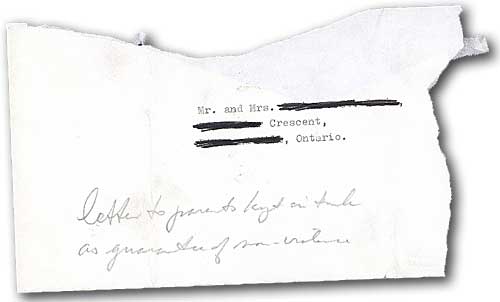 Mr. and Mrs. ,
Crescent,
, Ontario.
letter to parents kept in
as guarantee of non-violence